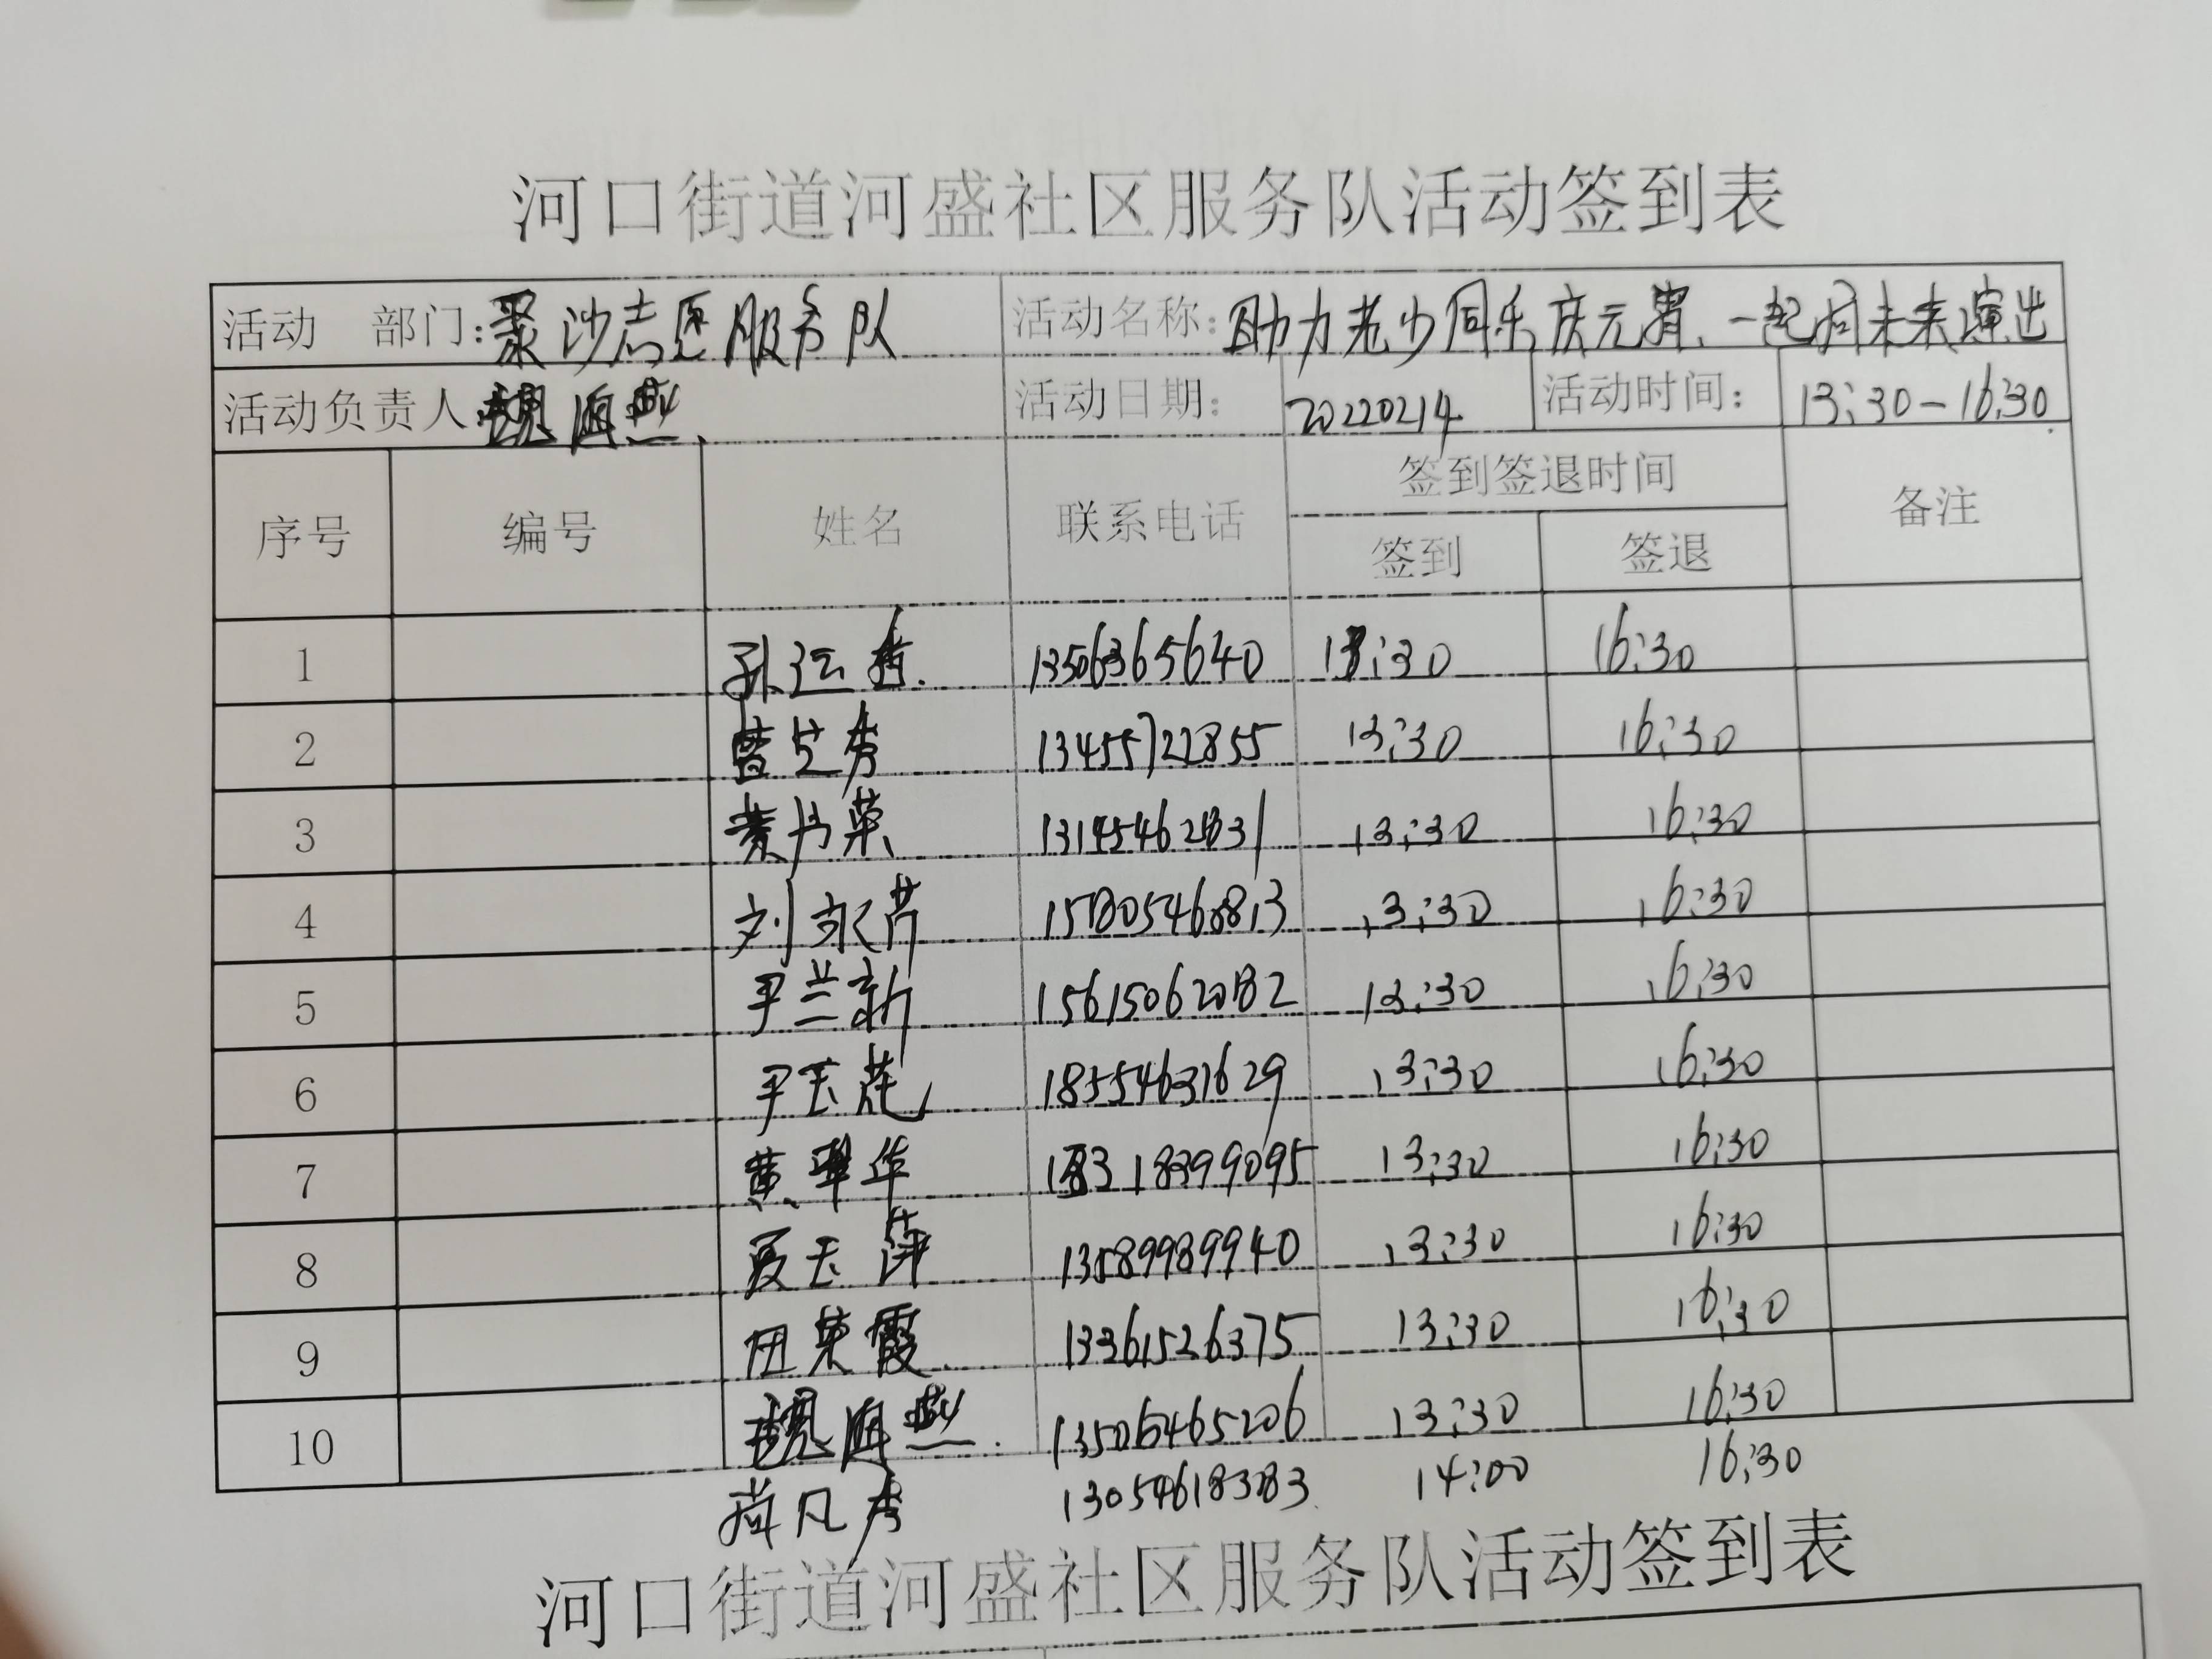 河口街道河盛社区服务队活动签到表
活动 部门:聚沙志愿服务队 活动名称:助力老少同乐庆元宵、一起向未来演出
活动负责人 魏海燕 活动日期: 20220214 活动时间: 13:30-16:30
序号 编号 姓名 联系电话 签到签退时间 备注
签到 签退
1 孙运香 13506365640 13:30 16:30
2 曹芝秀 13455722855 13:30 16:30
3 13:30 16:30
4 刘永芹 13:30 16:30
5 尹兰新 13:30 16:30
6 尹玉花 18554631629 13:30 16:30
7 黄翠华 13:30 16:30
8 聂玉萍 13589989940 13:30 16:30
9 田荣霞 13361526375 13:30 16:30
10 魏海燕 13506465206 13:30 16:30
尚凡秀 13054618383 14:00 16:30
河口街道河盛社区服务队活动签到表